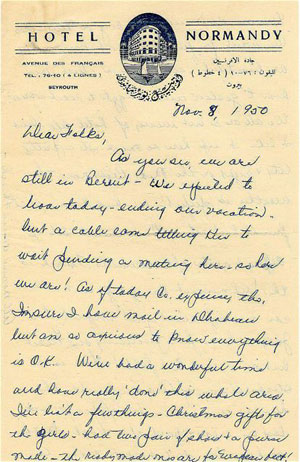 HOTEL NORMANDY
AVENUE DES FRANÇAIS
TEL.: 76-10 (4 LIGNES)
BEYROUTH
جاده الافرنسيين
التلفون: ١٠-٧٦ (٤ خطوط)
بيروت
Nov. 8, 1950
Dear Folks,
As you see, we are
still in Beirut - We expected to
leave today - ending our vacation -
but a cable came telling Him to
wait pending a meeting here - so here
we are! As of today Co. expenses, tho,
I'm sure I have mail in Dhahran
but am so anxious to know everything
is O.K. We've had a wonderful time
and have really 'done' this whole area.
I've bot a few things - Christmas gifts for
the girls - had two pair of shoes & a purse
made - the ready made ones are for European feet,